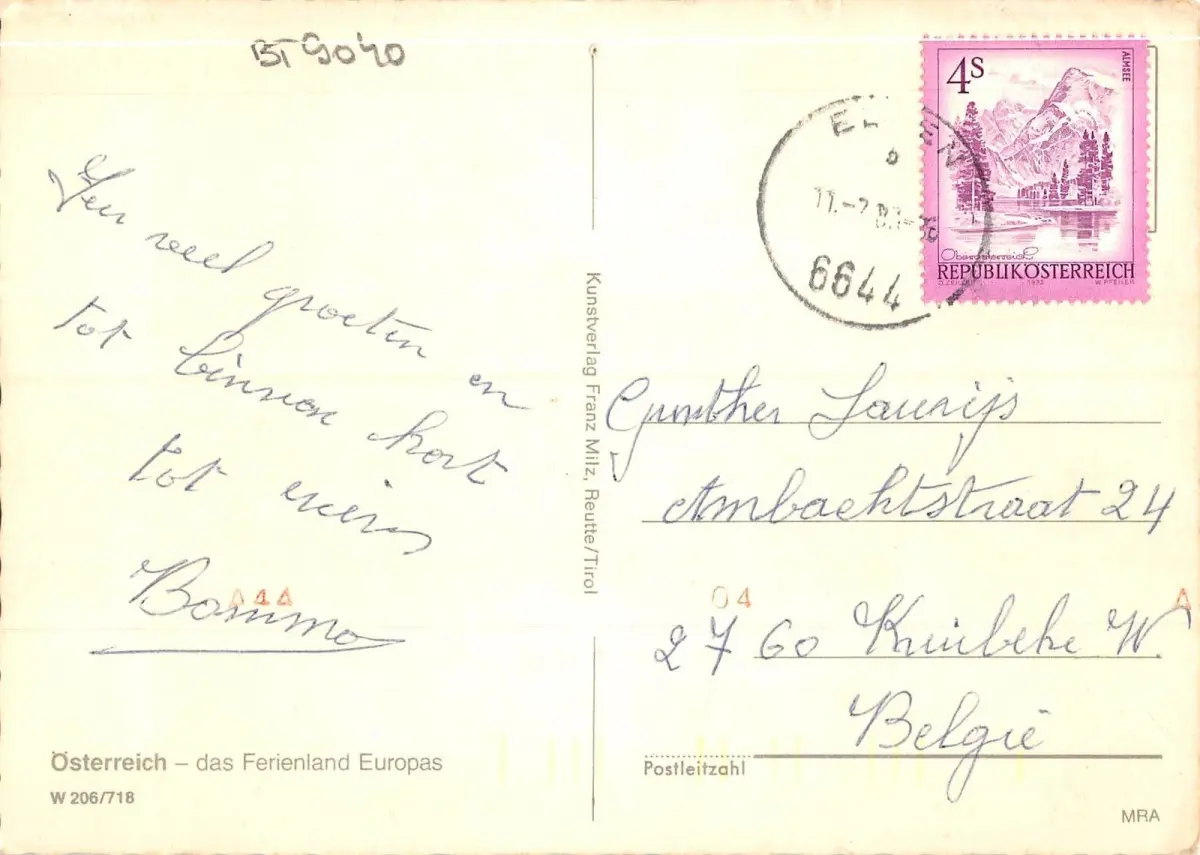 BT 9040
Zeer veel groeten en
tot binnen kort
tot
Bomma
A44
Österreich – das Ferienland Europas
W 206/718
Kunstverlag Franz Milz, Reutte/Tirol
4S
ALMSEE
Oberösterreich
REPUBLIK ÖSTERREICH
1973
6644
Gunther Laurijs
Ambachtstraat 24
04
A
2760 Kruibeke W.
België
Postleitzahl
MRA